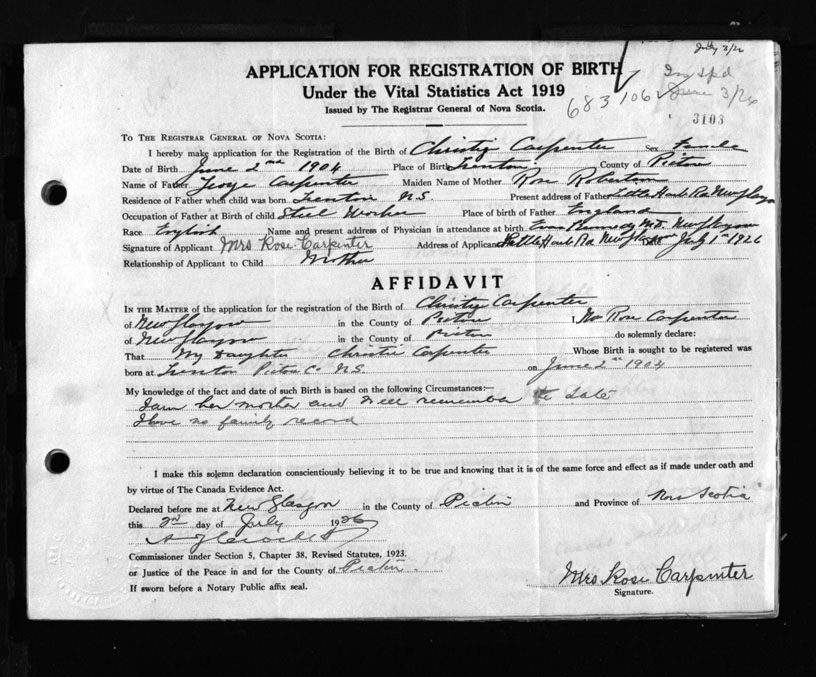 July 3/26
APPLICATION FOR REGISTRATION OF BIRTH
Under the Vital Statistics Act 1919
Issued by The Registrar General of Nova Scotia.
683106
3/26
3103
TO THE REGISTRAR GENERAL OF NOVA SCOTIA:
I hereby make application for the Registration of the Birth of Christy Carpenter Sex Female
Date of Birth June 2nd 1904 Place of Birth Trenton County of Pictou
Name of Father George Carpenter Maiden Name of Mother Rose Robertson
Residence of Father when child was born Trenton N.S. Present address of Father Little Harb Rd New Glasgow
Occupation of Father at Birth of child Steel Worker Place of birth of Father England
Race English Name and present address of Physician in attendance at birth Evan Kennedy M.D. New Glasgow
Signature of Applicant Mrs Rose Carpenter Address of Applicant Little Harb Rd New Glasgow July 1st 1926
Relationship of Applicant to Child Mother
AFFIDAVIT
IN THE MATTER of the application for the registration of the Birth of Christy Carpenter
of New Glasgow in the County of Pictou I Mrs Rose Carpenter
of New Glasgow in the County of Pictou do solemnly declare:
That My Daughter Christie Carpenter Whose Birth is sought to be registered was
born at Trenton Pictou Co N.S. on June 2nd 1904
My knowledge of the fact and date of such Birth is based on the following Circumstances:—
I am her mother and well remember the date
I have no family record
I make this solemn declaration conscientiously believing it to be true and knowing that it is of the same force and effect as if made under oath and
by virtue of The Canada Evidence Act.
Declared before me at New Glasgow in the County of Pictou and Province of Nova Scotia
this 2nd day of July 1926
Commissioner under Section 5, Chapter 38, Revised Statutes, 1923.
or Justice of the Peace in and for the County of Pictou
If sworn before a Notary Public affix seal.
Mrs Rose Carpenter
Signature.